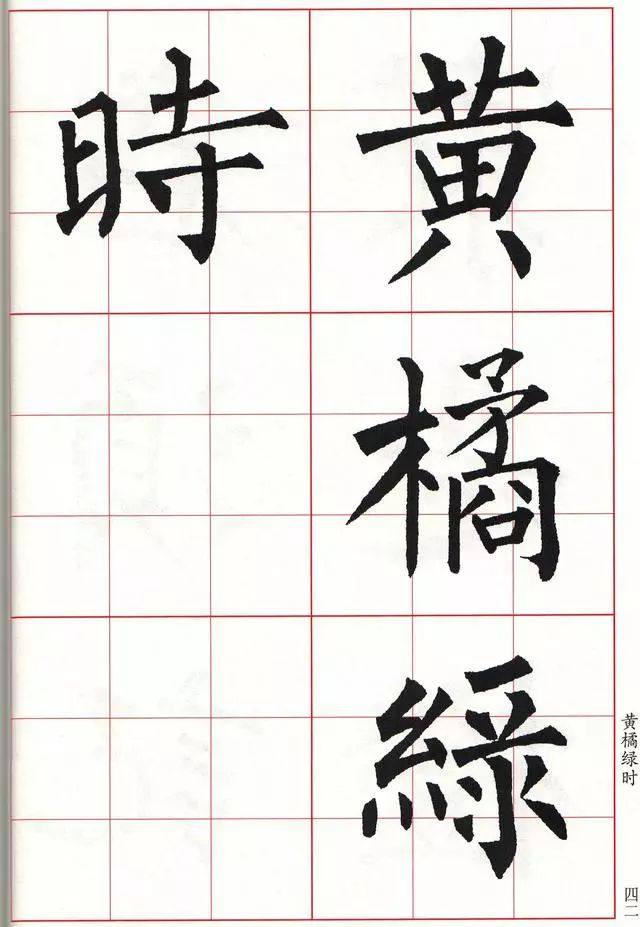 黄橘綠
時
黄橘绿时
四二